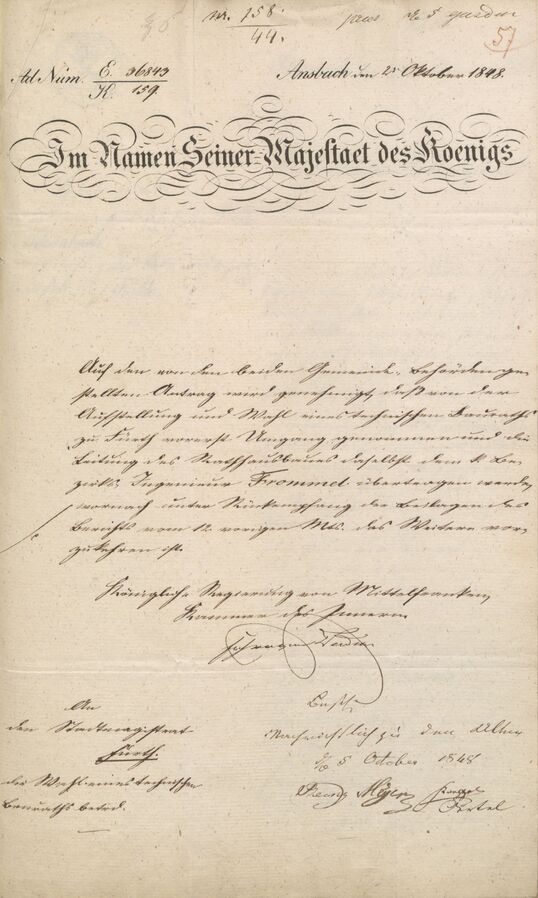 Nr. 158.
44.
praes de 5 
57
Ad Num. E. 36843
K. 159.
Ansbach den 25 Oktober 1848.
Im Namen Seiner Majestaet des Koenigs
Auf den von den beiden Gemeinde-Behörden ge-
stellten Antrag wird genehmigt, daß von der
Aufstellung und Wahl eines technischen Bauraths
zu Fürth vorerst Umgang genommen und die
Leitung des Rathhausbaues daselbst dem k. Be-
zirks-Ingenieur Frommel übertragen werde,
wornach unter Rückempfang der Beilagen des
Berichts vom 12. vorigen Mts. das Weitere vor-
zukehren ist.
Königliche Regierung von Mittelfranken,
Kammer des Innern.
An
den Stadtmagistrat
Fürth.
die Wahl eines technischen
Bauraths betrd.
Beschl.
Nachrichtlich zu den Akten
5 October 1848
Meyer